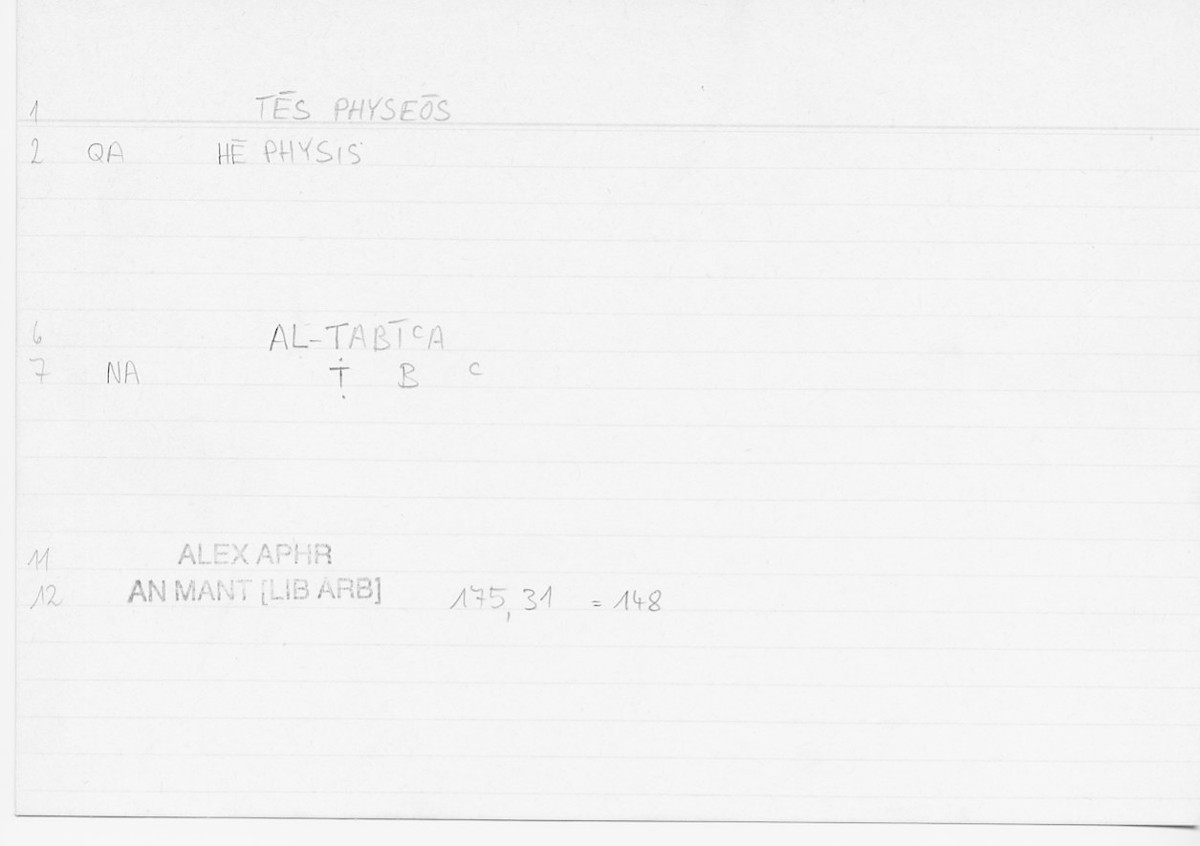 1 TĒS PHYSEŌS
2 QA HĒ PHYSIS
6 AL-TABĪᶜA
7 NA Ṭ B ᶜ
11 ALEX APHR
12 AN MANT [LIB ARB] 175,31 = 148